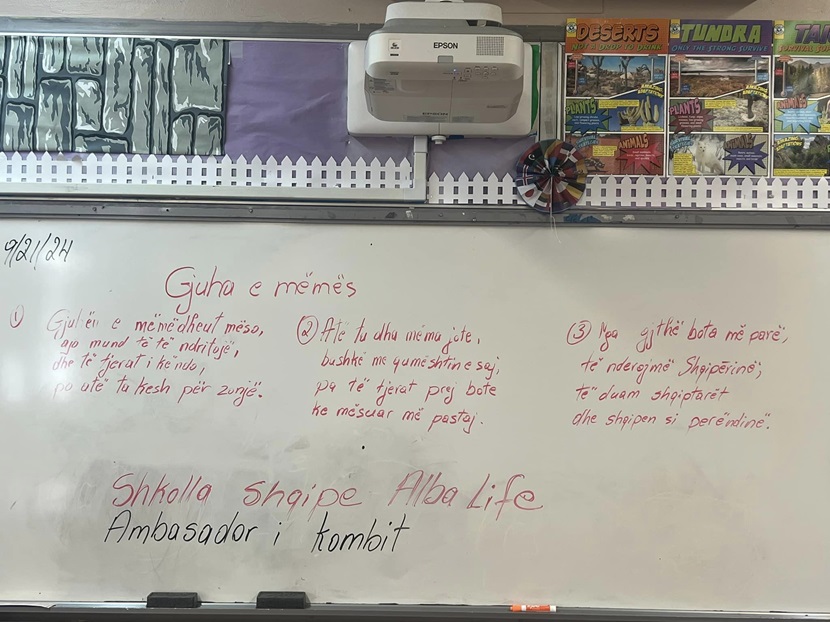 EPSON
DESERTS
NOT A DROP TO DRINK
PLANTS
ANIMALS
TUNDRA
ONLY THE STRONG SURVIVE
AMAZING ADAPTATIONS
PLANTS
ANIMALS
9/21/24
Gjuha e mëmës
① Gjuhën e mëmëdheut mëso,
ajo mund të të ndritojë,
dhe të tjerat i këndo,
po atë ta kesh për zonjë.
② Atë ta dha mëma jote,
bashkë me qumështin e saj,
pa të tjerat prej bote
ke mësuar më pastaj.
③ Nga gjithë bota më parë,
të nderojmë Shqipërinë;
të duam shqiptarët
dhe shqipen si perëndinë.
Shkolla shqipe Alba Life
Ambasador i kombit